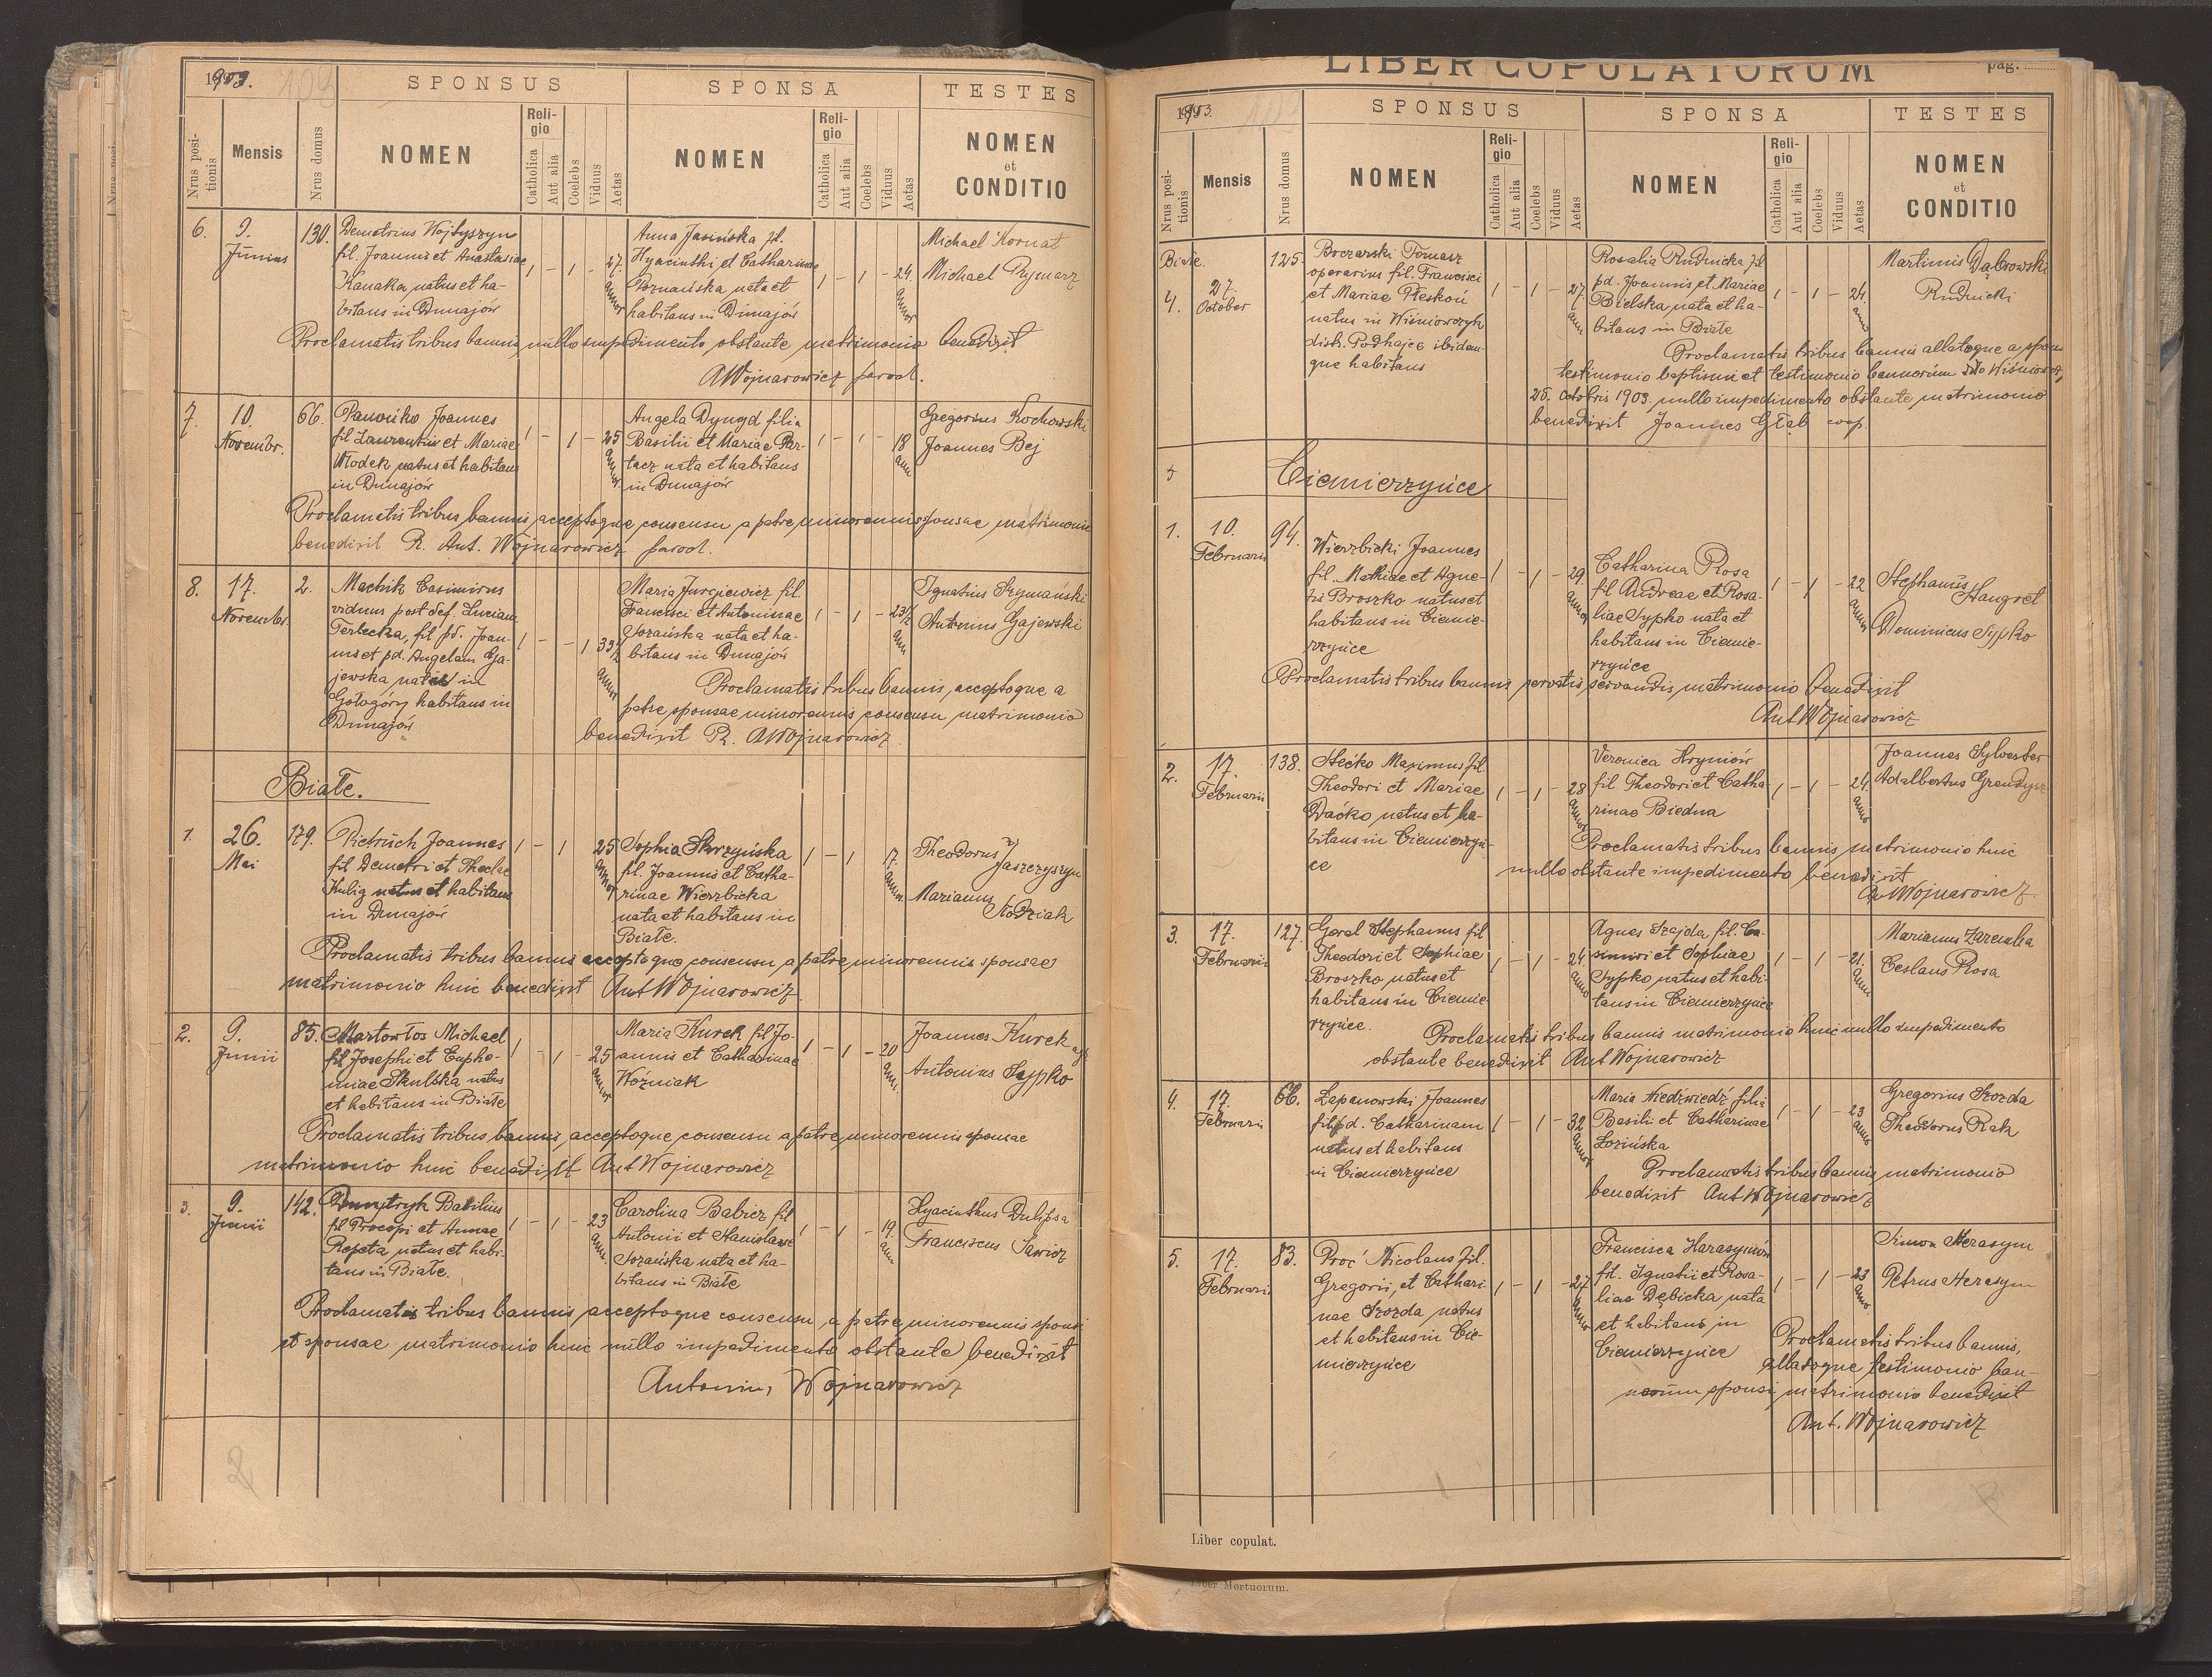 1903.
SPONSUS
SPONSA
TESTES
Nrus positionis
Mensis
Nrus domus
NOMEN
Religio
Catholica
Aut alia
Coelebs
Viduus
Aetas
NOMEN
Religio
Catholica
Aut alia
Coelebs
Viduus
Aetas
NOMEN
et
CONDITIO
6. 9. Junius 130.
Demetrius Wojtyszyn
fil. Joannis et Anastasiae
Kanaka, natus et ha-
bitans in Dunajów
1 - 1 - 27. annor
Anna Jasińska fil.
Hyacinthi et Catharinae
Poznańska nata et
habitans in Dunajów
1 - 1 - 24. annor
Michael Kornat
Michael Prymarz
Proclamatis tribus bannis, nullo impedimento obstante, matrimonio benedixit
AWojnarowicz paroch.
7. 10. Novembr. 66.
Panońko Joannes
fil Laurentii et Mariae
Włodek natus et habitans
in Dunajów
1 - 1 - 25 annor.
Angela Dyngd filia
Basilii et Mariae Par-
tacz nata et habitans
in Dunajów
1 - 1 - 18 ann
Gregorius Kochowski
Joannes Bej
Proclamatis tribus bannis, acceptoque consensu a patre minorennis sponsae matrimonio
benedixit R. Ant. Wojnarowicz paroch.
8. 17. Novembr. 2.
Machik Casimirus
viduus post def. Lucian
Terlecka, fil pd. Joan-
nis et pd. Angelam Ga-
jewska natus in
Gołogóry habitans in
Dunajów
1 - - 1 33 1/2 annor
Maria Jurgiewicz fil
Francisci et Antoninae
Sozańska nata et ha-
bitans in Dunajów
1 - 1 - 23 1/2 ann
Ignatius Szymański
Antonius Gajewski
Proclamatis tribus bannis, acceptoque a
patre sponsae minorennis consensu matrimonio
benedixit R. AWojnarowicz
Białe.
1. 26. Mai 179.
Pietruch Joannes
fil Demetri et Theclae
Kulig natus et habitans
in Dunajów
1 - 1 25 annor
Sophia Skrzyńska
fil. Joannis et Catha-
rinae Wierzbicka
nata et habitans in
Białe.
1 - 1 17. annor.
Theodorus Jaszczyszyn
Marianus Stodziak
Proclamatis tribus bannis acceptoque consensu a patre minorennis sponsae
matrimonio huic benedixit Ant Wojnarowicz
2. 9. Junii 85.
Martowłos Michael
fil Josephi et Euphe-
miae Skulska natus
et habitans in Białe
1 - 1 - 25 annor
Maria Kurek fil Jo-
annis et Catharinae
Woźniak
1 - 1 - 20 ann.
Joannes Kurek agr
Antonius Sypko
Proclamatis tribus bannis, acceptoque consensu a patre minorennis sponsae
matrimonio huic benedixit Ant Wojnarowicz
3. 9. Junii 142.
Dmytryk Basilius
fil Procopi et Annae
Repeta natus et habi-
tans in Białe.
1 - 1 - 23 ann.
Carolina Babicz fil
Antonii et Stanislavae
Sozańska nata et ha-
bitans in Białe
1 - 1 - 19. ann
Hyacinthus Dulipsa
Franciscus Sawicz
Proclamatis tribus bannis acceptoque consensu a patre minorennis sponsi
et sponsae matrimonio huic nullo impedimento obstante benedixit
Antonius Wojnarowicz
2
LIBER COPULATORUM
pag.
1903.
SPONSUS
SPONSA
TESTES
Nrus positionis
Mensis
Nrus domus
NOMEN
Religio
Catholica
Aut alia
Coelebs
Viduus
Aetas
NOMEN
Religio
Catholica
Aut alia
Coelebs
Viduus
Aetas
NOMEN
et
CONDITIO
Białe.
4. 27. October 125.
Boczarski Tomasz
operarius fil. Francisci
et Mariae Płeskoń
natus in Wiśniowczyk
distr. Podhajce ibidem-
que habitans
1 - 1 - 27. ann
Rosalia Rudnicka fil
pd. Joannis et Mariae
Bielska, nata et ha-
bitans in Białe
1 - 1 - 24. ann
Martinus Dąbrowski
Rudnicki
Proclamatis tribus bannis allatoque a sponso
testimonio baptismi et testimonio bannorum ddo
25. Octobris 1903. nullo impedimento obstante matrimonio
benedixit Joannes Głąb coop.
Ciemierzyńce
1. 10. Februarii 94.
Wierzbicki Joannes
fil. Mathiae et Agne-
tis Broszko natus et
habitans in Ciemie-
rzyńce
1 - 1 - 29. annor
Catharina Rosa
fil Andreae et Rosa-
liae Sypko nata et
habitans in Ciemie-
rzyńce
1 - 1 - 22 annor
Stephanus Stangret
Dominicus Sypko
Proclamatis tribus bannis servatis servandis, matrimonio benedixit
Ant Wojnarowicz
2. 17. Februarii 138.
Stećko Maximus fil.
Theodori et Mariae
Daćko natus et ha-
bitans in Ciemierzyń-
ce
1 - 1 - 28 annor
Veronica Hryniów
fil Theodori et Catha
rinae Biedna
1 - 1 - 24. anno
Joannes Sylvester
Adalbertus Grendysz
Proclamatis tribus bannis matrimonio huic
nullo obstante impedimento benedixit
AntWojnarowicz.
3. 17. Februarii 127.
Goral Stephanus fil
Theodori et Sophiae
Broszko natus et
habitans in Ciemie
rzyńce.
1 - 1 - 24 anno
Agnes Szajda fil. Ca-
simiri et Sophiae
Sypko natus et habi-
tans in Ciemierzyńce
1 - 1 - 21. ann
Marianus Zaremba
Ceslaus Rosa
Proclamatis tribus bannis matrimonio huic nullo impedimento
obstante benedixit Ant Wojnarowicz
4. 17. Februarii 66.
Łapanowski Joannes
fil pd. Catharinam
natus et habitans
in Ciemierzyńce
1 - 1 - 32 annor
Maria Niedźwiedź filia
Basilii et Catharinae
Łozińska
1 - 1 - 23 anno
Gregorius Szozda
Theodorus Rak
Proclamatis tribus bannis matrimonio
benedixit Ant Wojnarowicz
5. 17. Februarii 83.
Proć Nicolaus fil.
Gregorii, et Cathari
nae Szozda, natus
et habitans in Cie-
mierzyńce
1 - 1 - 27. anno
Francisca Harasymów
fil. Ignatii et Rosa-
liae Dębicka nata
et habitans in
Ciemierzyńce
1 - 1 - 23 anno
Simon Herasym
Petrus Herasym
Proclamatis tribus bannis,
allatoque testimonio ban-
norum sponsi, matrimonio benedixit
Ant. Wojnarowicz
Liber copulat.
Liber Mortuorum.